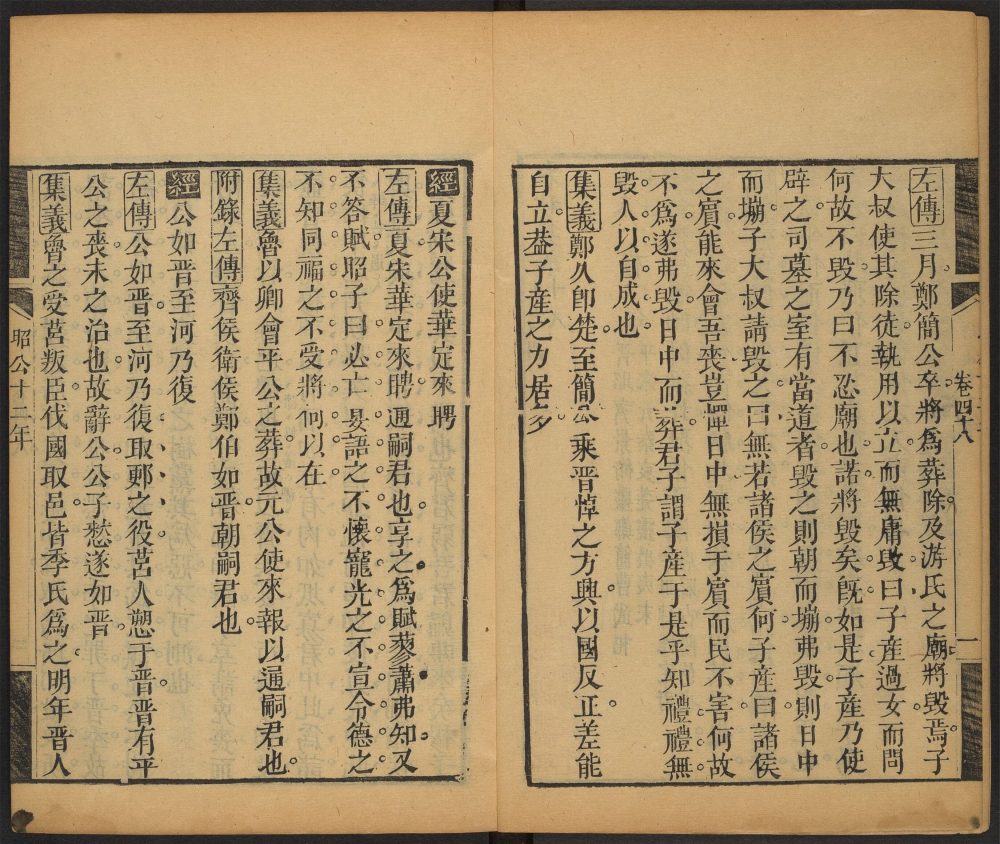 左傳三月鄭簡公卒將爲葬除及游氏之廟將毀焉子
大叔使其除徒執用以立而無庸毀曰子產過女而問
何故不毀乃曰不忍廟也諾將毀矣旣如是子產乃使
辟之司墓之室有當道者毀之則朝而塴弗毀則日中
而塴子大叔請毀之曰無若諸侯之賓何子產曰諸侯
之賓能來會吾喪豈憚日中無損于賓而民不害何故
不爲遂弗毀日中而葬君子謂子產于是乎知禮禮無
毀人以自成也
集義鄭久卽楚至簡公乗晉悼之方興以國反正差能
自立葢子產之力居多
卷四十八
一
經夏宋公使華定來聘
左傳夏宋華定來聘通嗣君也享之爲賦蓼蕭弗知又
不答賦昭子曰必亡宴語之不懷寵光之不宣令德之
不知同福之不受將何以在
集義魯以卿會平公之葬故元公使來報以通嗣君也
附錄左傳齊侯衛侯鄭伯如晉朝嗣君也
經公如晉至河乃復
左傳公如晉至河乃復取郠之役莒人愬于晉晉有平
公之喪未之治也故辭公公子憖遂如晉
集義魯之受莒叛臣伐國取邑皆季氏爲之明年晉人
昭公十二年